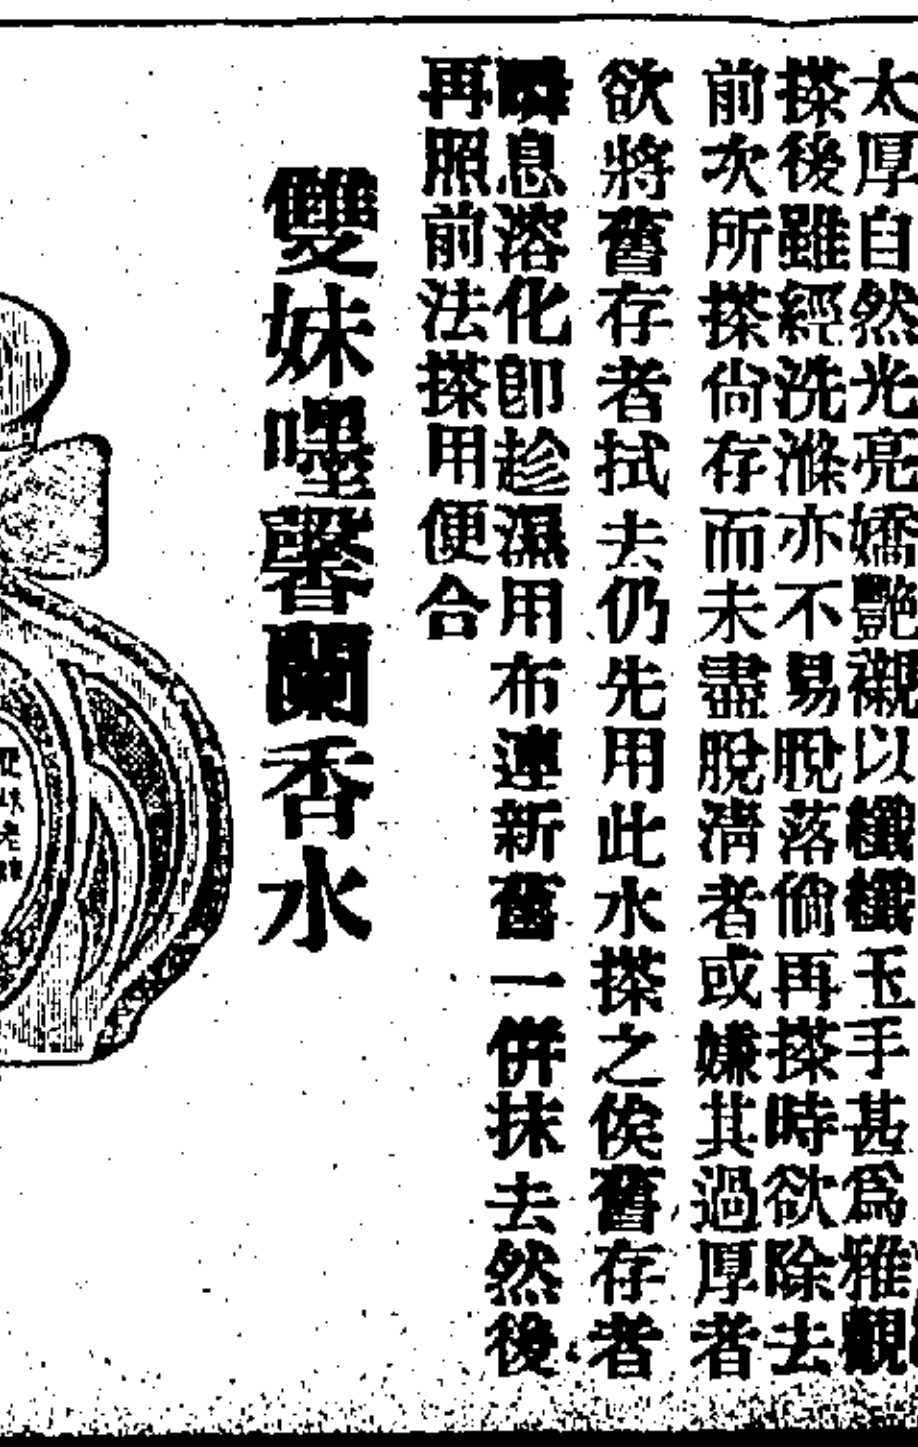 太厚自然光亮嬌艷襯以纖纖玉手甚爲雅觀
搽後雖經洗滌亦不易脫落倘再搽時欲除去
前次所搽尙存而未盡脫淸者或嫌其過厚者
欲將舊存者拭去仍先用此水搽之俟舊存者
瞬息溶化卽趁濕用布連新舊一併抹去然後
再照前法搽用便合
雙妹嚜馨蘭香水